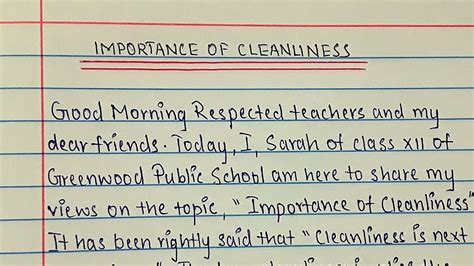 IMPORTANCE OF CLEANLINESS
Good Morning Respected teachers and my
dear friends. Today, I, Sarah of class XII of
Greenwood Public School am here to share my
views on the topic, "Importance of Cleanliness"
It has been rightly said that "Cleanliness is next